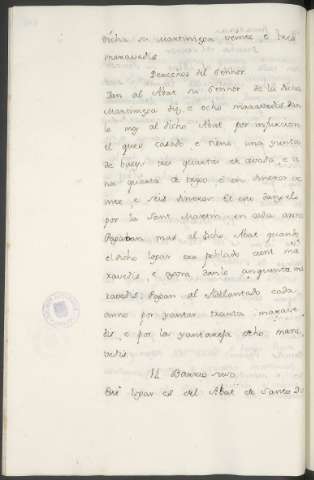 dicha su Martiniega veinte e tres
maravedis.
Derechos del Señor
Dan al Abat su Señor de la dicha
Martiniega diez e ocho maravedis. Dan
le mas al dicho Abat por infurcion
el que es casado, e tiene una yunta
de bueys tres quartas de cevada, e u
na quarta de trigo e un dinero
e seis dineros. E esto dangelo
por la Sant Martin en cada anno
Pagaban mas al dicho Abat quando
el dicho logar era poblado cient ma
ravedis, e agora danle cinquenta ma
ravedis. Pagan al Adelantado cada
anno por yantar treinta marave
dis, e por la yantareja ocho mara
vedis.
Barrio-suso
Este logar es del Abat de Santo D